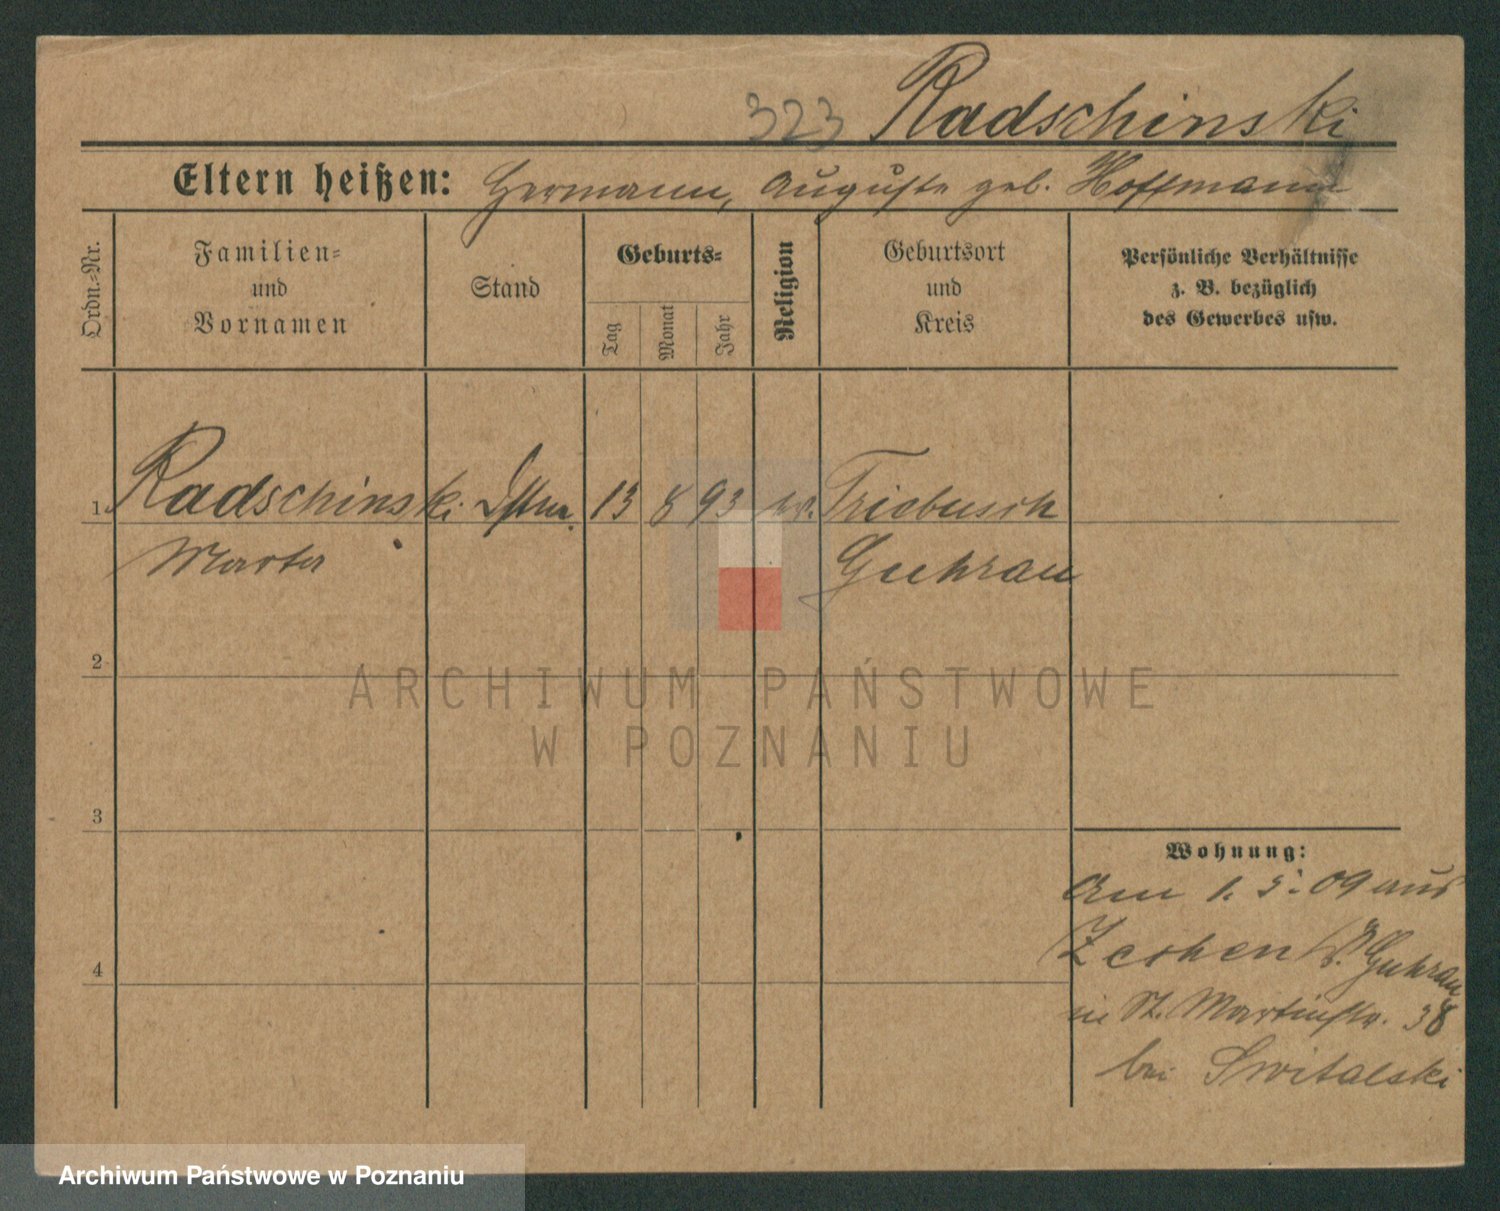 323 Radschinski
Eltern heißen: Hermann, Auguste geb. Hoffmann
Ordn.-Nr.
Familien-
und
Vornamen
Stand
Geburts-
Tag
Monat
Jahr
Religion
Geburtsort
und
Kreis
Persönliche Verhältnisse
z. B. bezüglich
des Gewerbes usw.
1. Radschinski 13 8 93 ev. Triebusch
Marta Guhrau
2
3
4
Wohnung:
am 1. 5. 09 aus
Guhrau
in St. Martinstr. 38
bei Switalski
ARCHIWUM PAŃSTWOWE
W POZNANIU
Archiwum Państwowe w Poznaniu